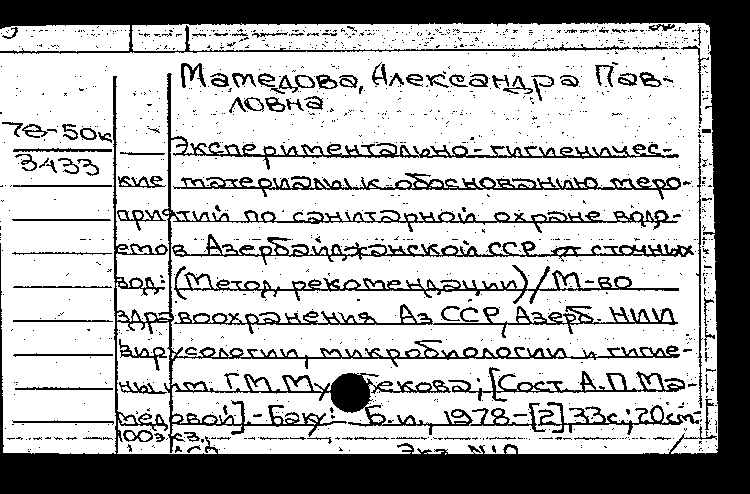 Мамедова, Александра Пав-
ловна.
78-50к
3433
Экспериментально-гигиеничес-
кие материалы к обоснованию меро-
приятий по санитарной охране водо-
емов Азербайджанской ССР от сточных
вод: (Метод. рекомендации) / М-во
здравоохранения Аз ССР, Азерб. НИИ
вирусологии, микробиологии и гигие-
ны им. Г.М. Му екова; [Сост. А.П. Ма-
медовой].- Баку: Б.и., 1978.- [2], 33с.; 20см.
100экз.
Экз. N10